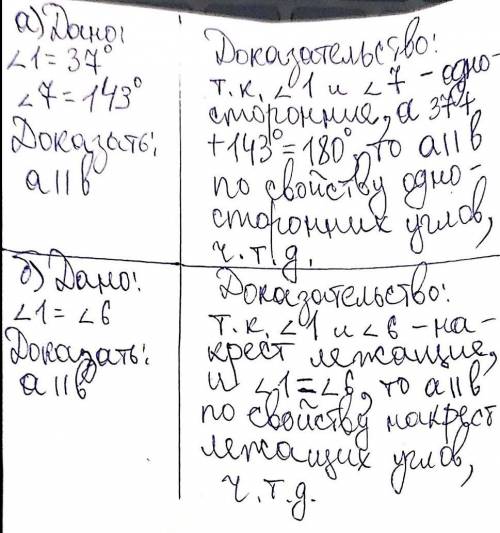 а) Дано:
∠1 = 37°
∠7 = 143°
Доказать:
a || b
Доказательство:
т.к. ∠1 и ∠7 - одно-
сторонние, а 37+
+143° = 180°, то a || b
по свойству одно-
сторонних углов,
ч.т.д.
б) Дано:
∠1 = ∠6
Доказать:
a || b
Доказательство:
т.к. ∠1 и ∠6 - на-
крест лежащие,
и ∠1 = ∠6, то a || b
по свойству накрест
лежащих углов,
ч.т.д.